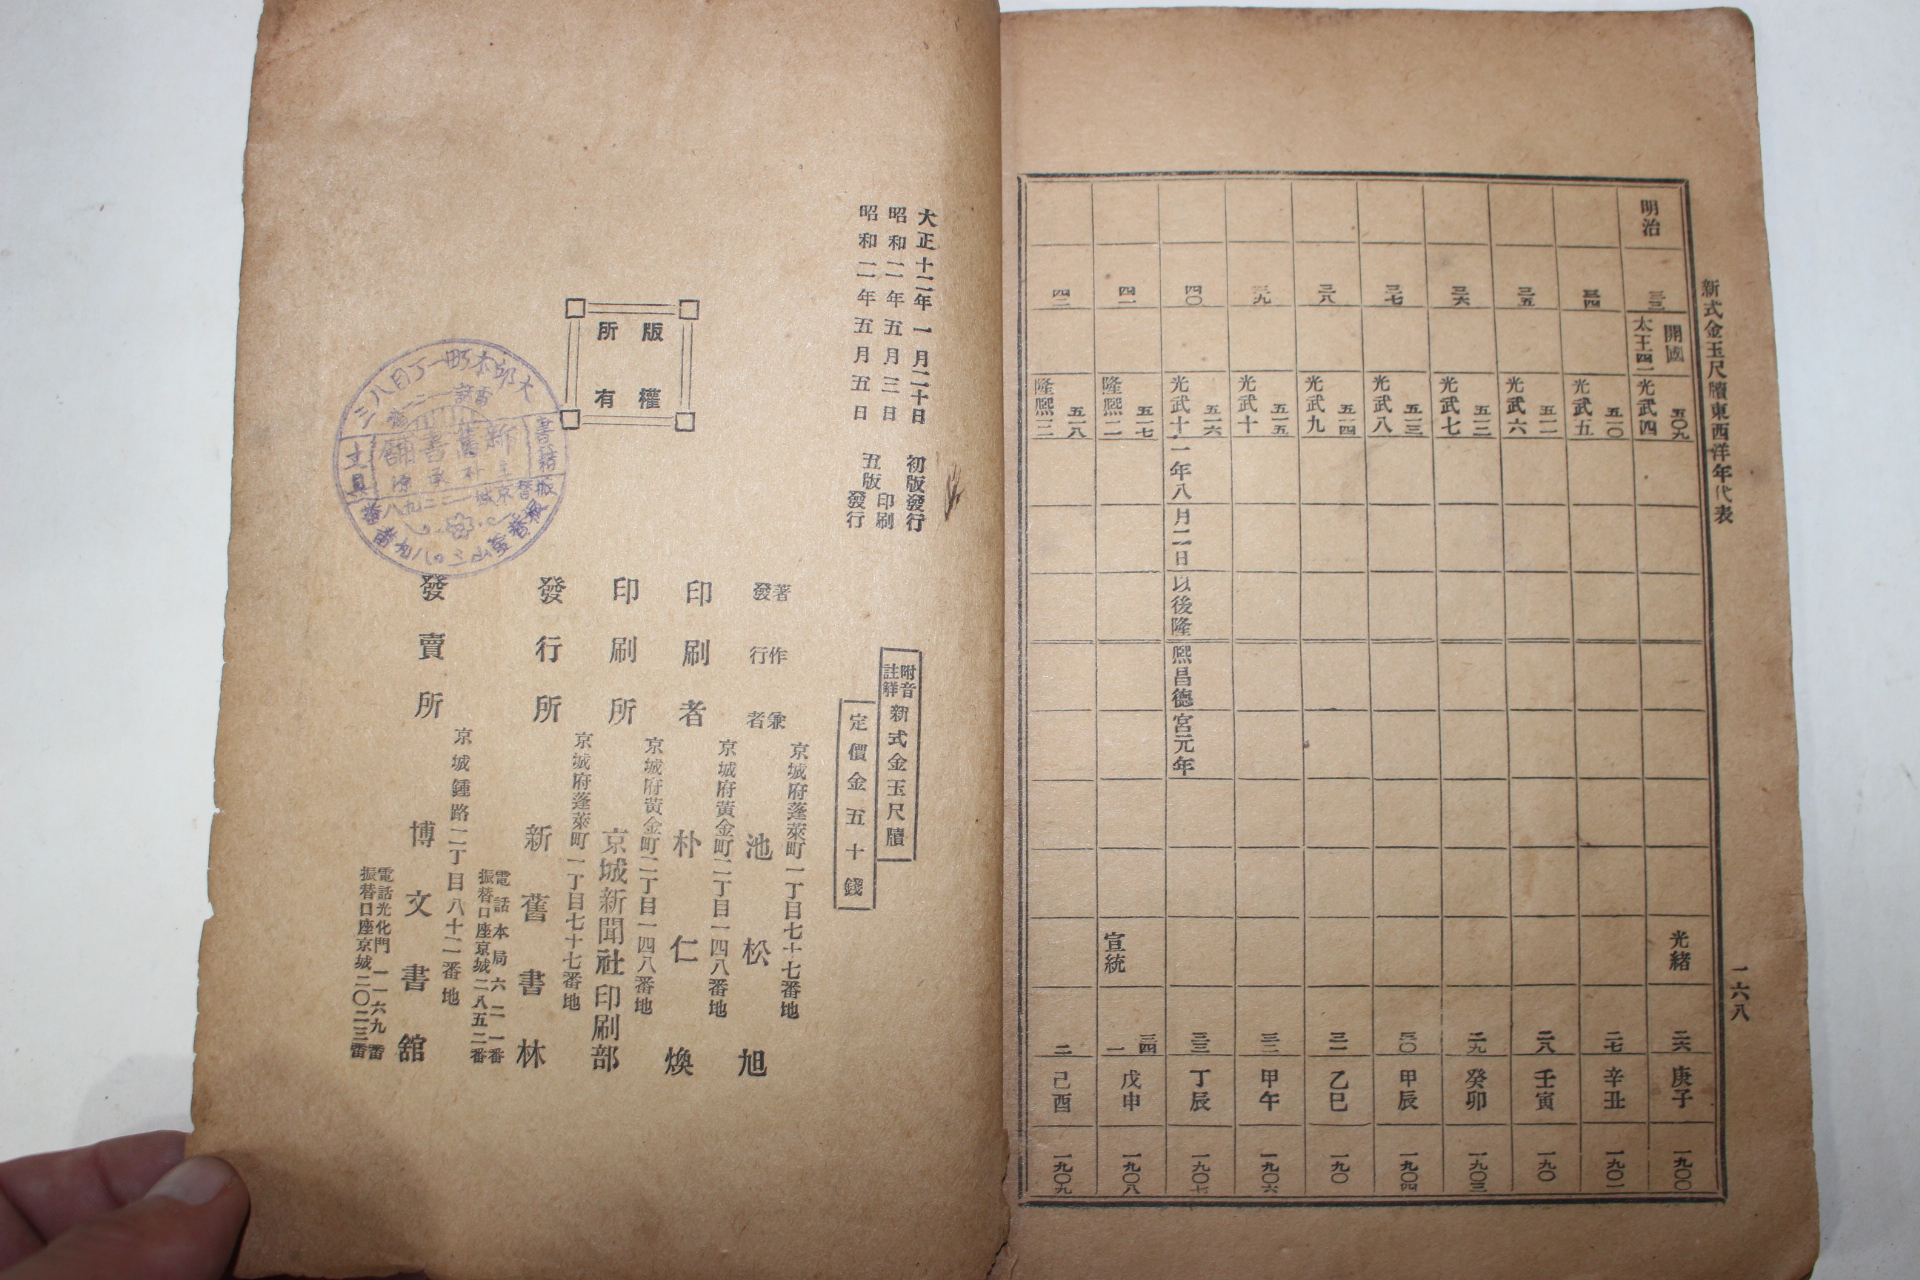 新式金玉尺牘東西洋年代表
一六八
明治
三三
開國 五〇九
太王四一
光武四
光緒
二六
庚子
一九〇〇
三四
五一〇
光武五
二七
辛丑
一九〇一
三五
五一一
光武六
二八
壬寅
一九〇
三六
五一二
光武七
二九
癸卯
一九〇三
三七
五一三
光武八
三〇
甲辰
一九〇四
三八
五一四
光武九
三一
乙巳
一九〇
三九
五一五
光武十
三二
甲午
一九〇六
四〇
五一六
光武十一年八月二日以後隆熙昌德宮元年
三三
丁辰
一九〇七
四一
五一七
隆熙二
宣統
三四
一
戊申
一九〇八
四二
五一八
隆熙三
二
己酉
一九〇九
大正十二年一月二十日 初版發行
昭和二年五月三日 印刷
昭和二年五月五日 五版發行
附音註解 新式金玉尺牘
定價金五十錢
版權所有
京城府蓬萊町一丁目七十七番地
著作兼發行者 池松旭
京城府黄金町二丁目一四八番地
印刷者 朴仁煥
京城府黄金町二丁目一四八番地
印刷所 京城新聞社印刷部
京城府蓬萊町一丁目七十七番地
發行所 新舊書林
電話本局六二一番
振替口座京城二八五二番
京城鍾路二丁目八十二番地
發賣所 博文書舘
電話光化門一一六九番
振替口座京城二〇二三番
大邱本町一丁目八八三
新舊書舖
書籍
文具